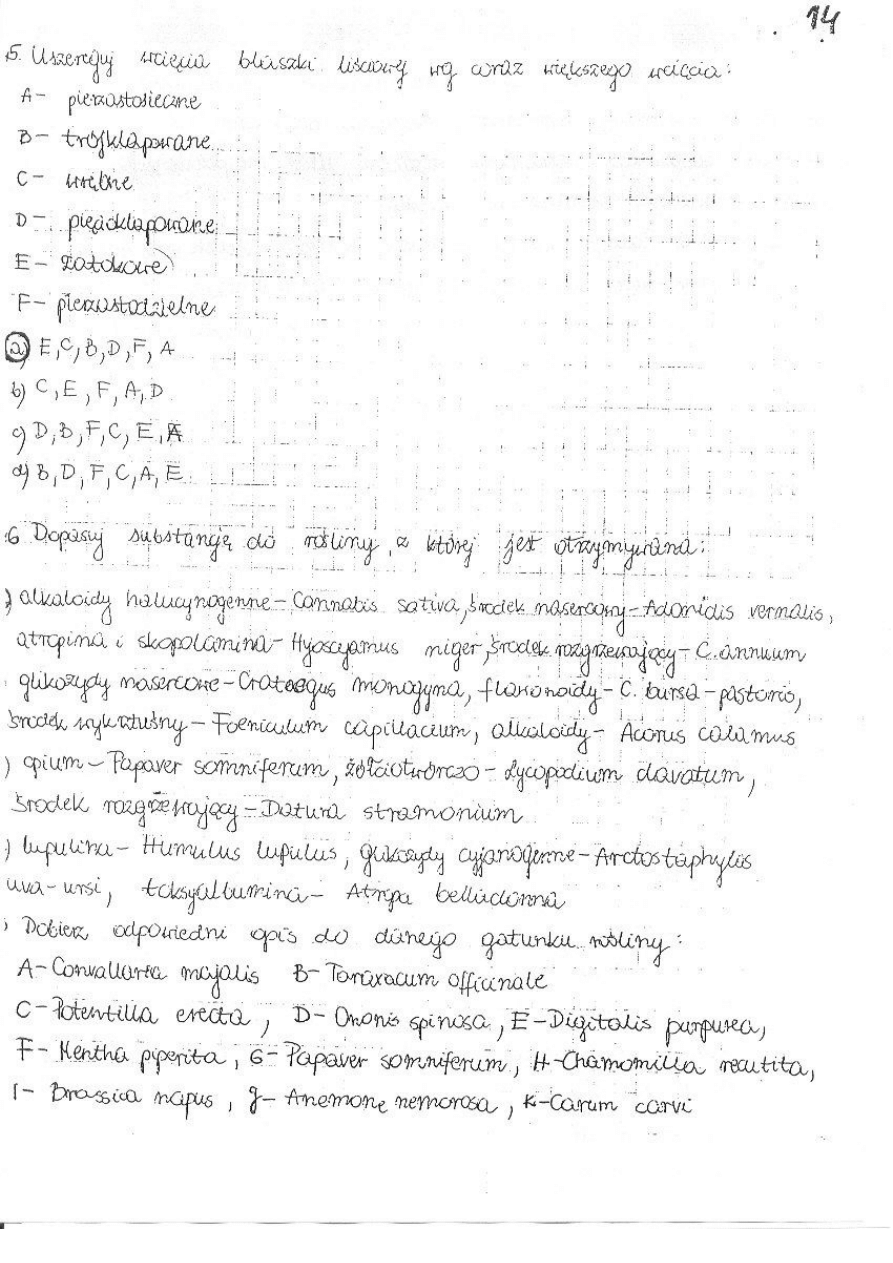 14
5. Uszereguj wcięcia blaszki liściowej wg coraz większego wcięcia:
A- pierzastosieczne
B- trójklapowane
C- wrębne
D- pięcioklapowane
E- zatokowe
F- pierzastodzielne
a) E, C, B, D, F, A
b) C, E, F, A, D
c) D, B, F, C, E, A
d) B, D, F, C, A, E
6 Dopasuj substancję do rośliny, z której jest otrzymywana:
) alkaloidy halucynogenne - Cannabis sativa, środek nasercowy - Adonidis vernalis,
atropina i skopolamina - Hyoscyamus niger, środek rozgrzewający - C. annuum
glikozydy nasercowe - Crataegus monogyna, flawonoidy - C. bursa - pastoris,
środek wykrztuśny - Foeniculum capillaceum, alkaloidy - Acorus calamus
) opium - Papaver somniferum, żółciotwórczo - Lycopodium clavatum,
środek rozgrzewający - Datura stramonium
) lupulina - Humulus lupulus, glikozydy cyjanogenne - Arctostaphylis
uva-ursi, toksyalbumina - Atropa belladonna
) Dobierz odpowiedni opis do danego gatunku rośliny:
A- Convallaria majalis B- Taraxacum officinale
C- Potentilla erecta, D- Ononis spinosa, E- Digitalis purpurea,
F- Mentha piperita, G- Papaver somniferum, H- Chamomilla recutita,
I- Brassica napus, J- Anemone nemorosa, K- Carum carvi